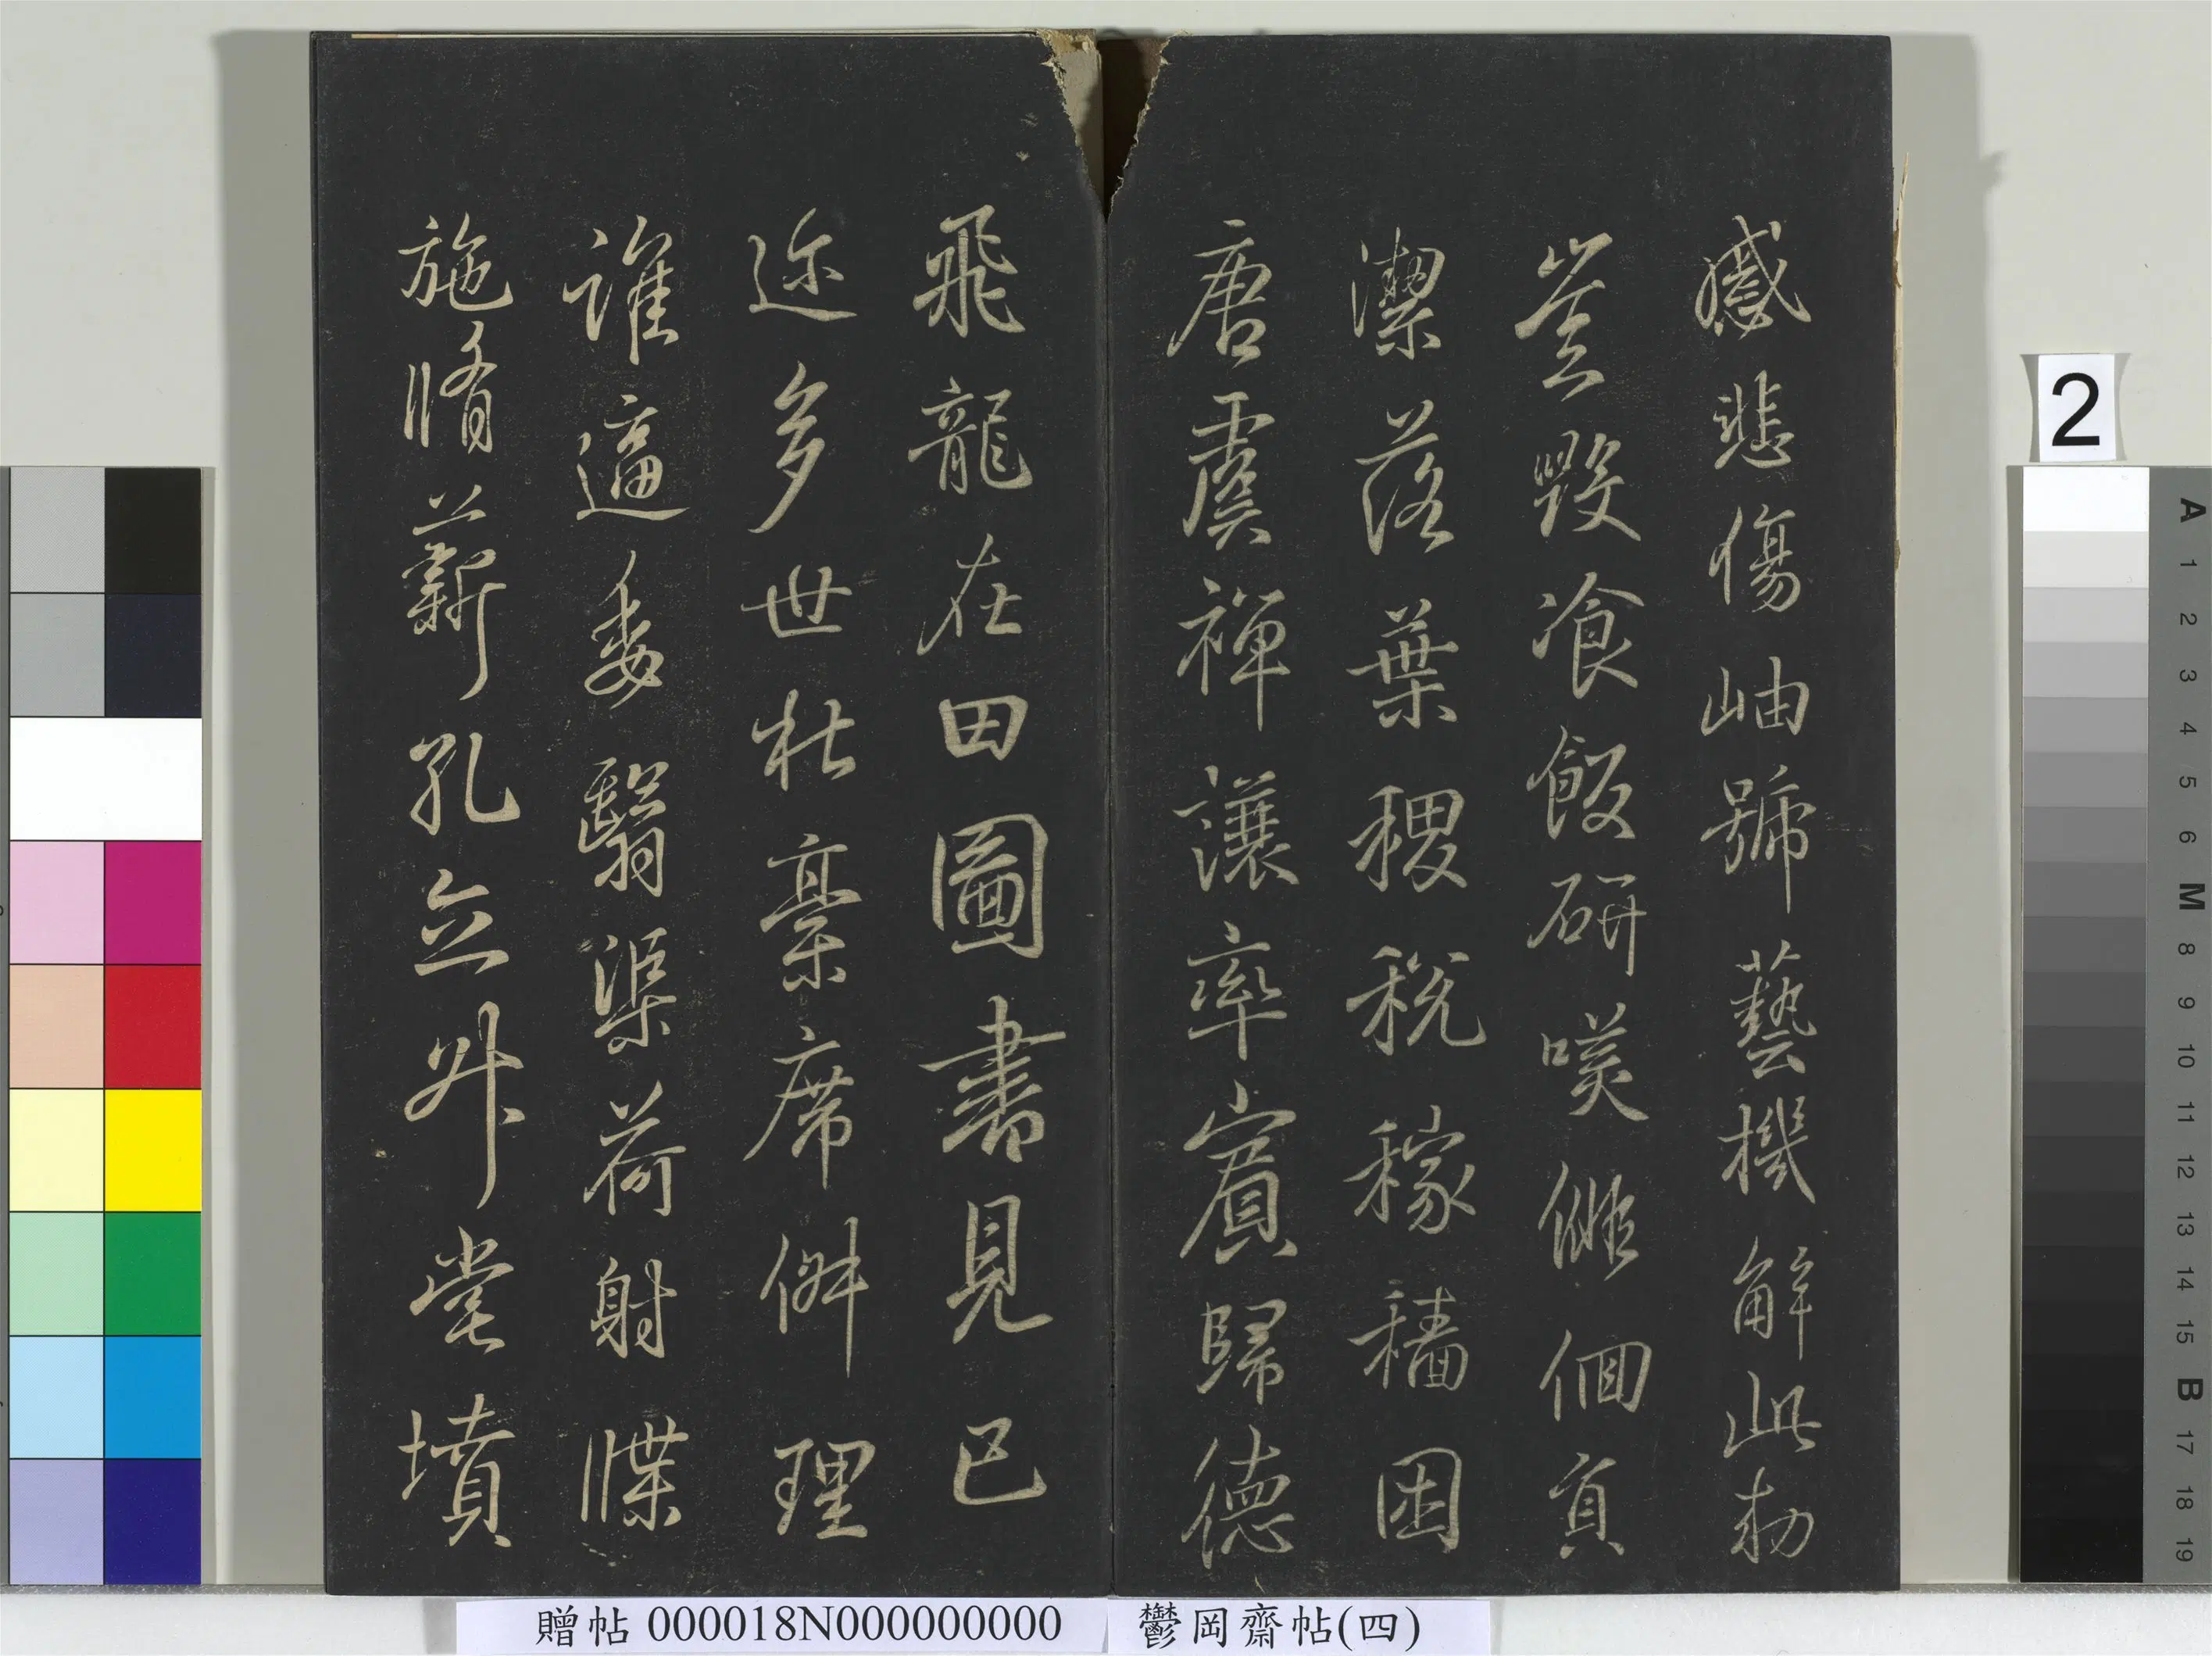 感悲傷岫號藝機解此勑
豈毀飡飯研嘆
潔落葉稷稅稼穡困
唐虞禪讓率賓歸德
飛龍在田圖書見已
迩多世杜稾席理
誰逼委翳渠荷射牒
施脩薪孔立外堂墳
贈帖 000018N000000000
鬱岡齋帖(四)
2
A
1
2
3
4
5
6
M
8
9
10
11
12
13
14
15
B
17
18
19